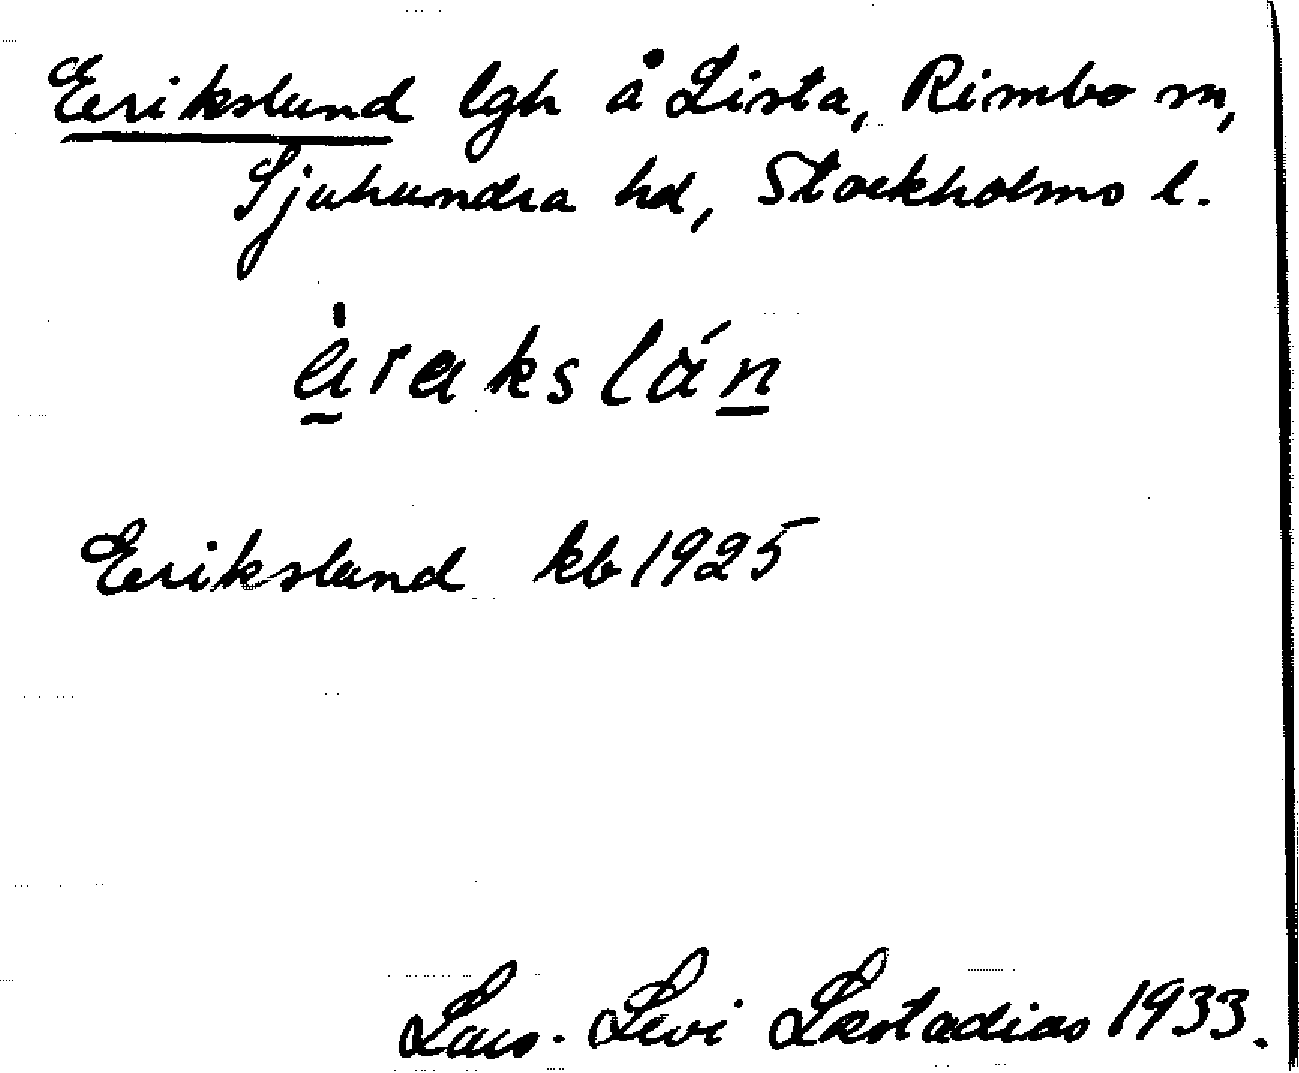 Erikslund lgh å Lista, Rimbo sn,
Sjuhundra hd, Stockholms l.
èrakslán
Erikslund kb 1925
Lars-Levi Læstadius 1933.